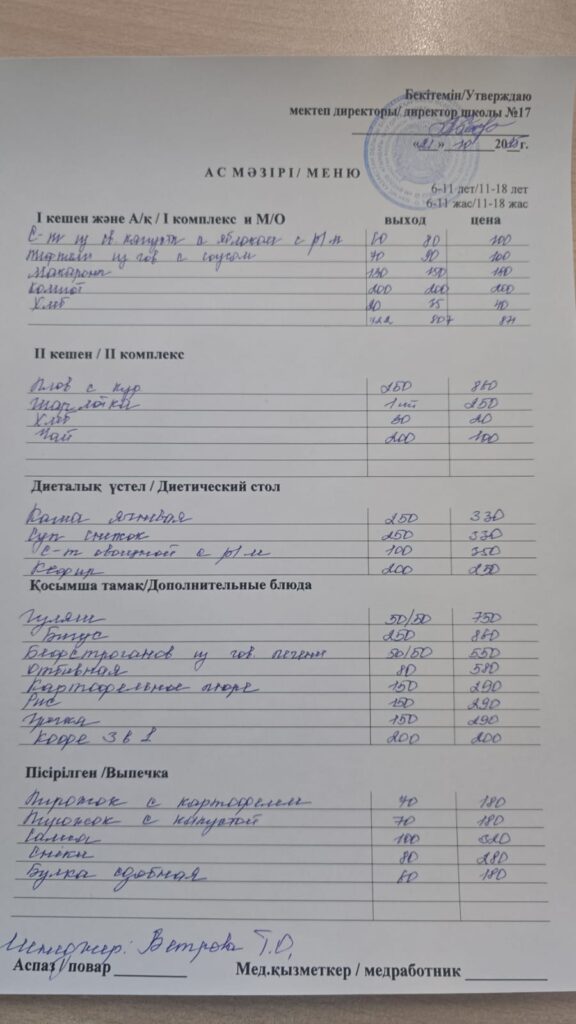 Бекітемін/Утверждаю
мектеп директоры/ директор школы №17
«21» 10 2025г.
АС МӘЗІРІ/ МЕНЮ
6-11 лет/11-18 лет
6-11 жас/11-18 жас
І кешен және А/қ / І комплекс и М/О выход цена
С-т из св. капусты с яблоком с р/м 60 80 100
из гов с соусом 70 90 100
Макароны 130 150
Компот 200 200 200
Хлеб 20 35 40
807 871
ІІ кешен / ІІ комплекс
Плов с кур 250 860
Шарлотка 1шт 250
Хлеб 30 20
Чай 200 100
Диеталық үстел / Диетический стол
Каша ячневая 250 330
Суп 250 330
С-т овощной с р/м 100 350
Кефир 200 250
Қосымша тамақ/Дополнительные блюда
Гуляш 50/50 750
Бигус 250 860
Бефстроганов из гов. печени 50/50 550
Отбивная 80 580
Картофельное пюре 150 290
Рис 150 290
Гречка 150 290
Кофе 3 в 1 200 200
Пісірілген /Выпечка
Пирожок с картофелем 70 180
Пирожок с капустой 70 180
Самса 100 320
80 280
Булка сдобная 60 180
Менеджер: Ветрова Т.О,
Аспаз / повар Мед.қызметкер / медработник